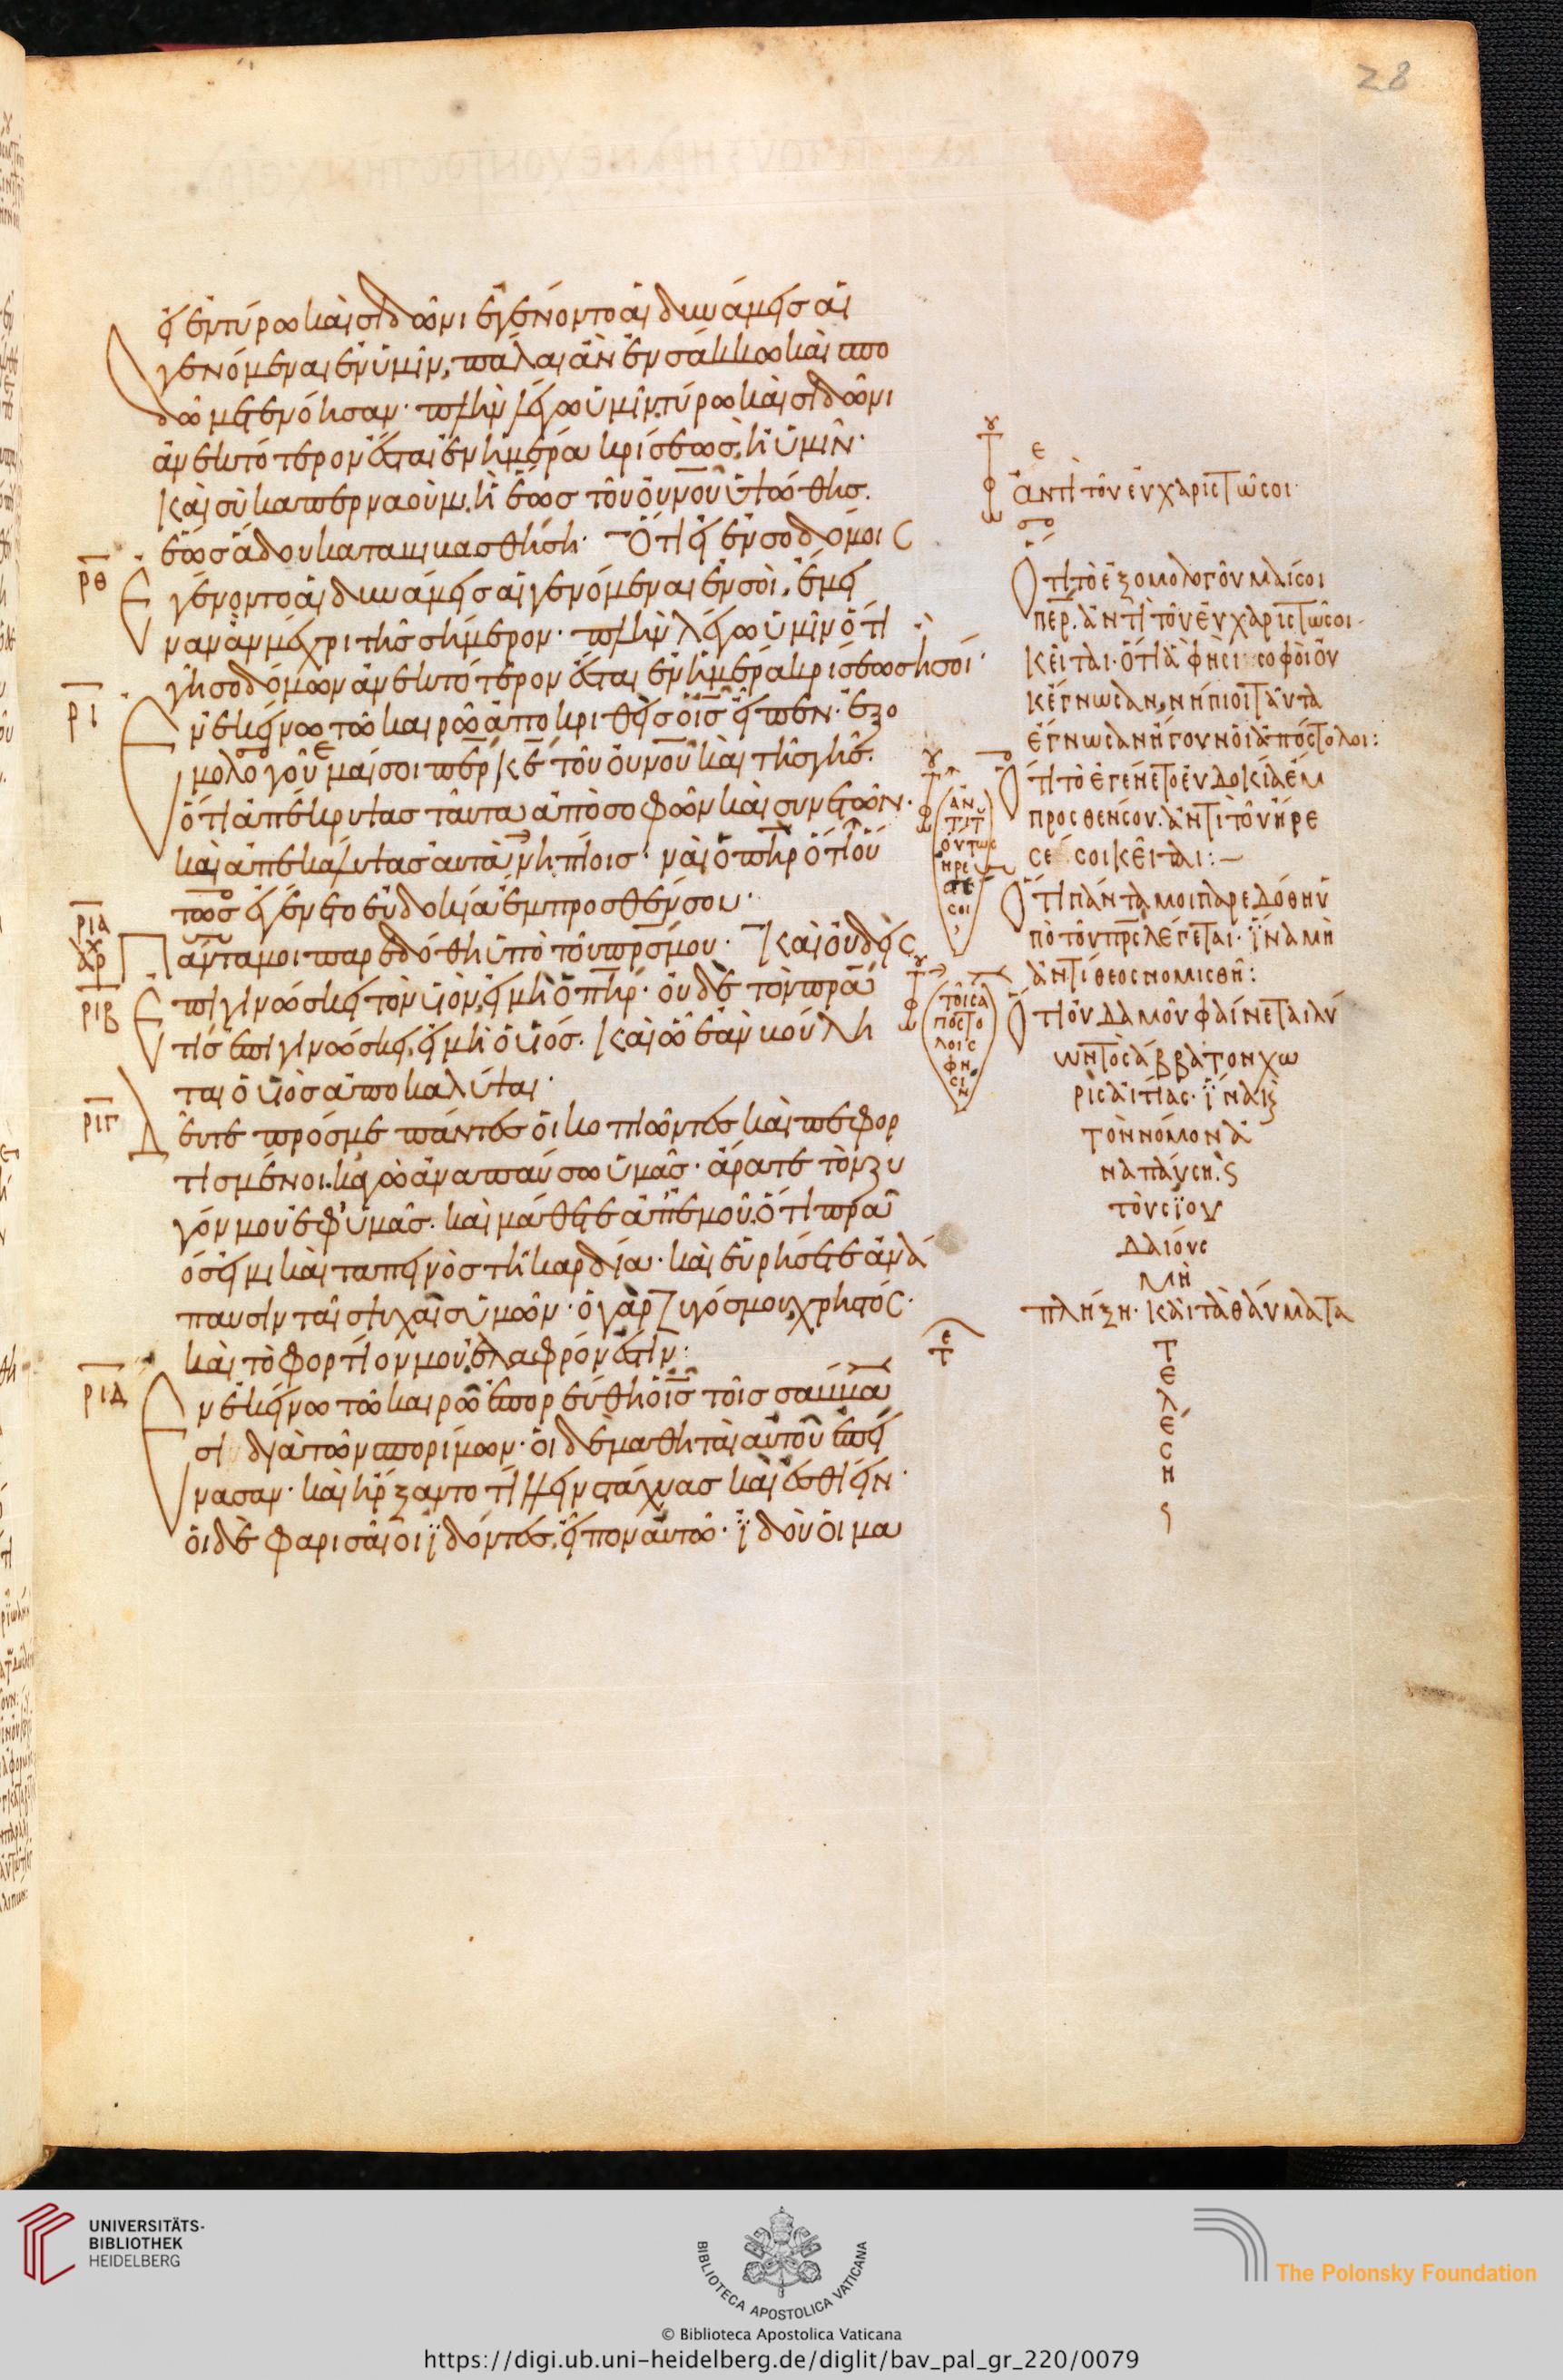 28
εἰ ἐν τύρω καὶ σιδῶνι ἐγένοντο αἱ δυνάμεις αἱ
γενόμεναι ἐν ὑμῖν, πάλαι ἂν ἐν σάκκω καὶ σπο
δῶ μετενόησαν· πλὴν λέγω ὑμῖν τύρω καὶ σιδῶνι
ἀνεκτότερον ἔσται ἐν ἡμέρα κρίσεως, ἢ ὑμῖν·
Καὶ σὺ καπερναοὺμ, ἡ ἕως τοῦ οὐνοῦ ὑψώθης.
ἕως ἅδου καταβιβασθήση· Ὅτι εἰ ἐν σοδόμοις
ρθ
ἐγένοντο αἱ δυνάμεις αἱ γενόμεναι ἐν σοὶ, ἔμει
ναν ἂν μέχρι τῆς σήμερον· πλὴν λέγω ὑμῖν ὅτι
γῆ σοδόμων ἀνεκτότερον ἔσται ἐν ἡμέρα κρίσεως ἢ σοί·
ρι
Ἐν ἐκείνω τῶ καιρῶ ἀποκριθεὶς ὁ ις εἶπεν· ἐξο
μολογοῦμαί σοι περ κε τοῦ οὐνοῦ καὶ τῆς γῆς.
ὅτι ἀπέκρυψας ταῦτα ἀπὸ σοφῶν καὶ συνετῶν·
καὶ ἀπεκάλυψας αὐτὰ νηπίοις· ναὶ ὁ πηρ ὅτι οὕ
τως ἐγένετο εὐδοκία ἔμπροσθέν σου·
ρια
Πάντα μοι παρεδόθη ὑπὸ τοῦ πρς μου· Καὶ οὐδεὶς
ριβ
ἐπιγινώσκει τὸν υἱόν, εἰ μὴ ὁ πηρ· οὐδὲ τὸν πρα
τίς ἐπιγινώσκει, εἰ μὴ ὁ υἱός. Καὶ ῶ ἐὰν βούλη
ται ὁ υἱὸς ἀποκαλύψαι·
ριγ
Δεῦτε πρός με πάντες οἱ κοπιῶντες καὶ πεφορ
τισμένοι. κἀγὼ ἀναπαύσω ὑμᾶς· ἄρατε τὸν ζυ
γόν μου ἐφ' ὑμᾶς· καὶ μάθετε ἀπ' ἐμοῦ. ὅτι πρᾶ
ός εἰμι καὶ ταπεινὸς τῆ καρδία· καὶ εὑρήσετε ἀνά
παυσιν ταῖς ψυχαῖς ὑμῶν· ὁ γὰρ ζυγός μου χρηστός·
καὶ τὸ φορτίον μου ἐλαφρόν ἐστιν:
ριδ
Ἐν ἐκείνω τῶ καιρῶ ἐπορεύθη ὁ ις τοῖς σάββα
σι διὰ τῶν σπορίμων· οἱ δὲ μαθηταὶ αὐτοῦ ἐπεί
νασαν· καὶ ἤρξαντο τίλλειν στάχυας καὶ ἐσθίειν·
οἱ δὲ φαρισαῖοι ἰδόντες, εἶπον αὐτῶ· ἰδοὺ οἱ μα
ἀντὶ τοῦ εὐχαριστῶ σοι·
Ὅτι τὸ ἐξομολογοῦμαί σοι
περ. ἀντὶ τοῦ εὐχαριστῶ σοι·
κεῖται· ὅτι ἃ φησι σοφοὶ οὐ
κ ἔγνωσαν, νήπιοι ταῦτα
ἔγνωσαν ἤγουν οἱ ἀπόστολοι:
Ὅτι τὸ ἐγένετο εὐδοκία ἔμ
προσθέν σου. ἀντὶ τοῦ ἤρε
σέ σοι κεῖται:—
Ὅτι πάντα μοι παρεδόθη ὑ
πὸ τοῦ πρς λέγεται· ἵνα μὴ
ἀντίθεος νομισθῆ:
Ὅτι οὐδαμοῦ φαίνεται λύ
ων τὸ σάββατον χω
ρὶς αἰτίας· ἵνα καὶ
τὸν νόμον ἀ
ναπαύση. καὶ
τοὺς ἰου
δαίους
μὴ
πλήξη· καὶ τὰ θαύματα
τελέση
ἀντὶ τοῦ οὕτως ἤρεσέ σοι
τοῖς ἀποστόλοις φησιν